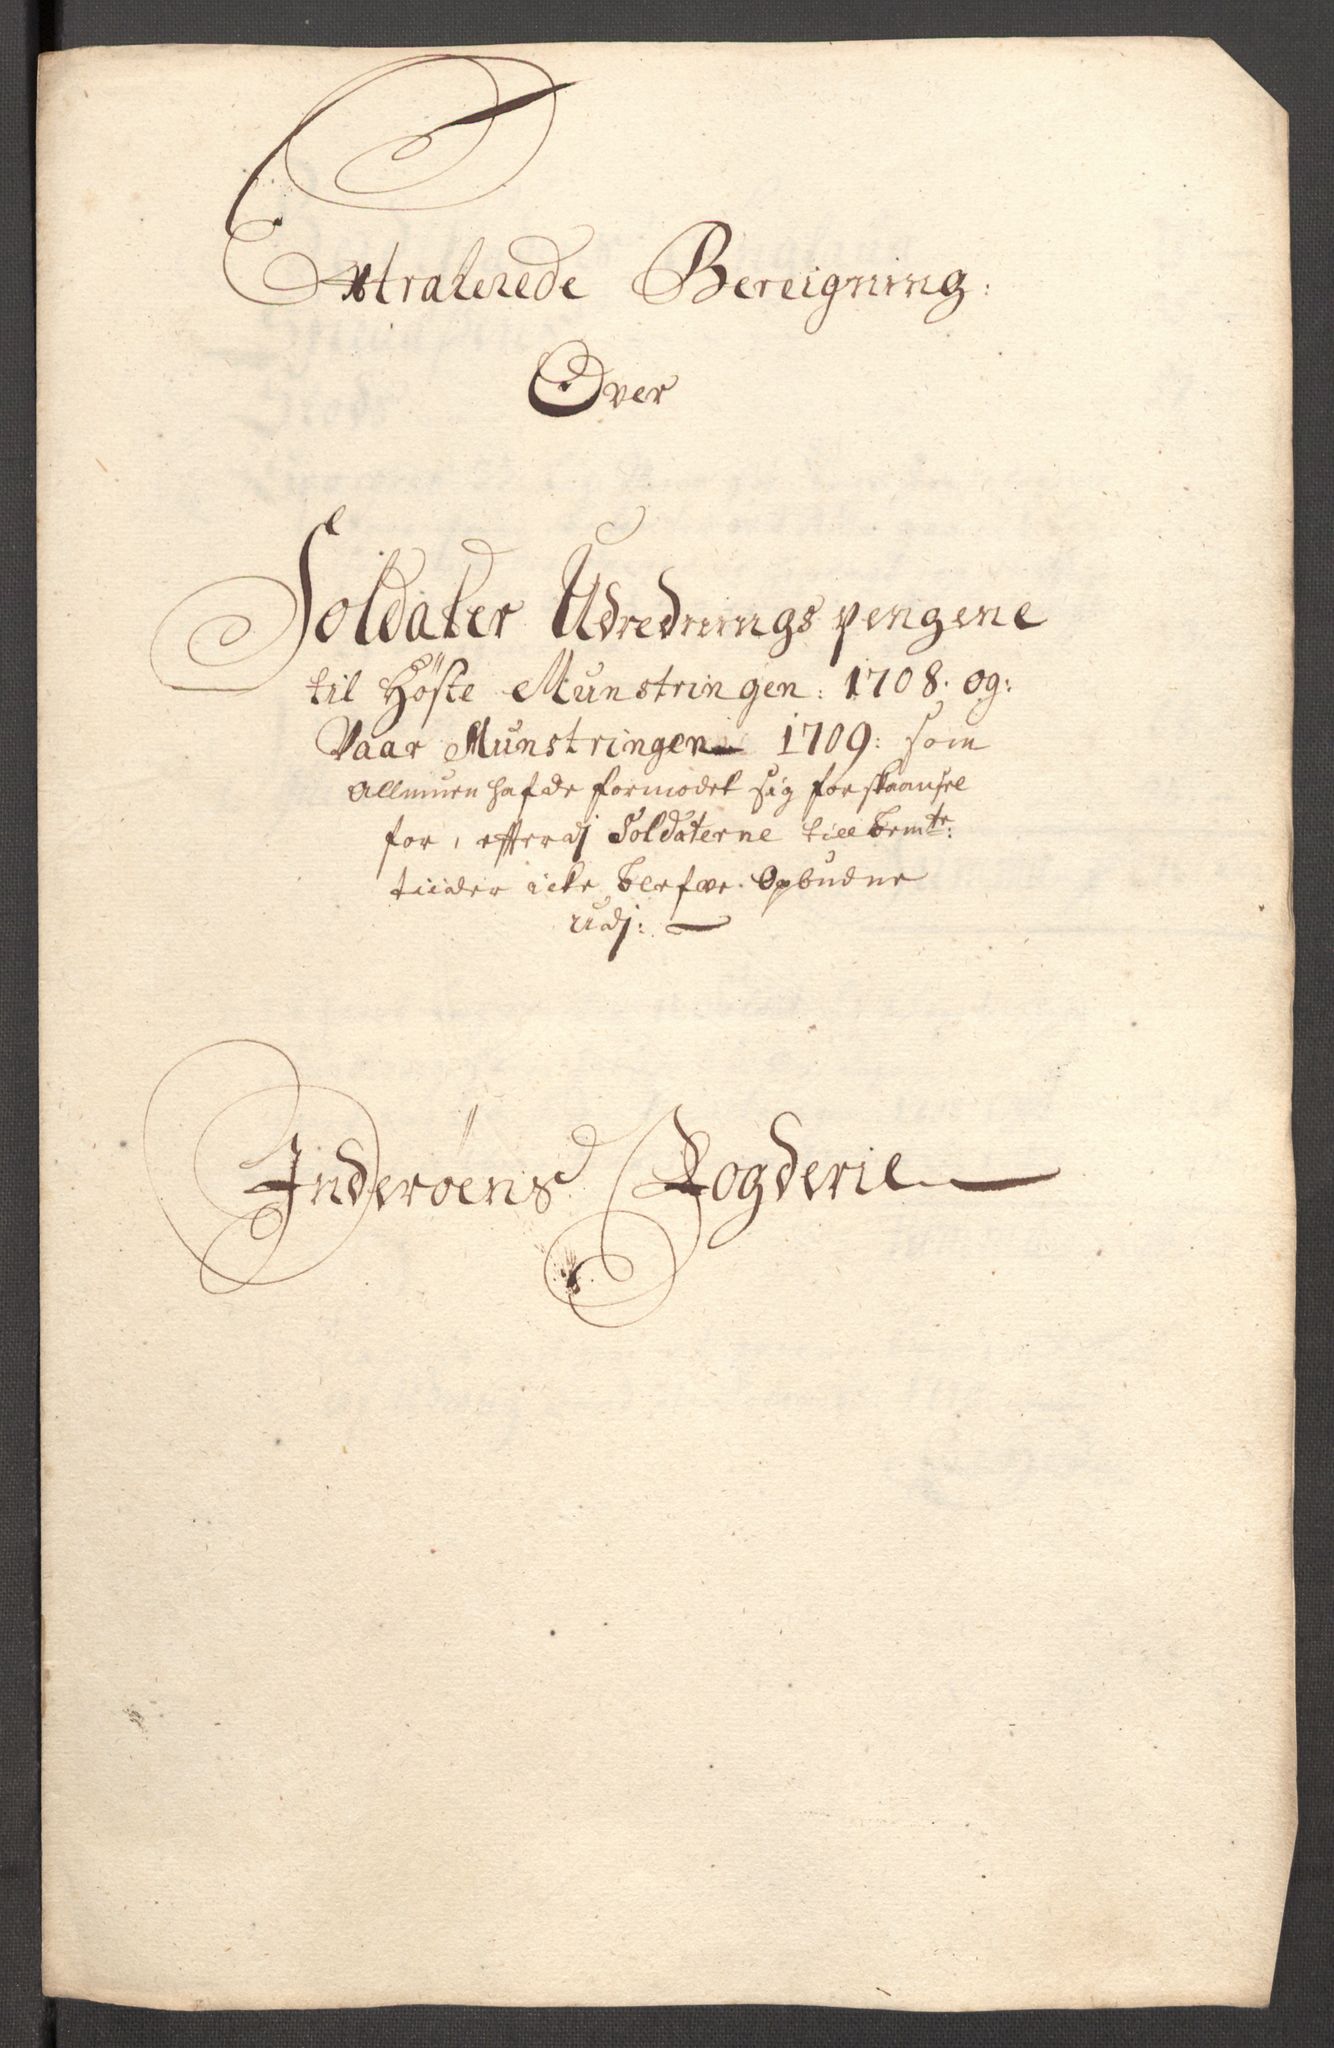 Extraherede Bereigning:
Over
Soldater Udrednings pengene
til Höste Munstringen: 1708. og:
Vaar Munstringen 1709: som
Allmuen hafde formodet sig forskaansel
for, efterdj Soldaterne till bemte:
tiider icke blefve Opbudne
udj:
Inderöens Fogderie